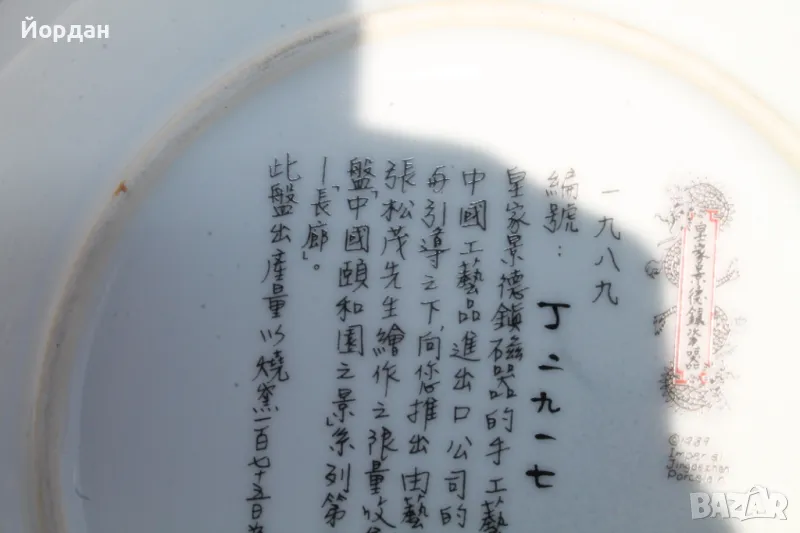 Йордан
皇家景德鎮瓷器
©1989
Imperial
Jingdezhen
Porcelain
一九八九
編號：丁二九一七
皇家景德鎮磁器的手工藝
中國工藝品進出口公司的
再引導之下,向您推出由藝
張松茂先生繪作之限量收
盤「中國頤和園之景」系列第
一「長廊」。
此盤出產量以燒窯一百七十五日為
BAZAR
bg